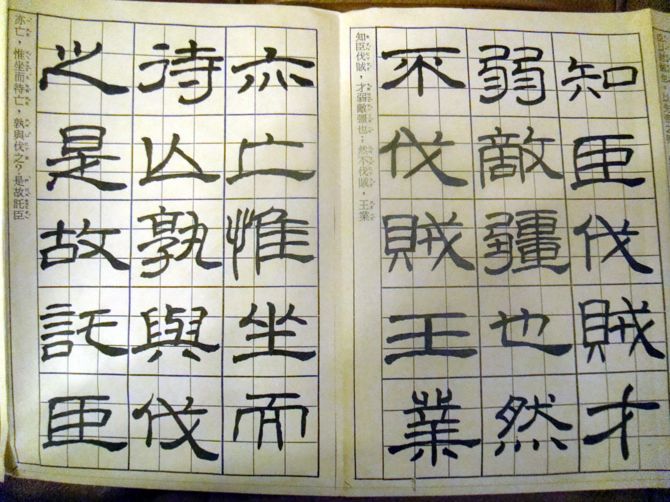 知臣伐賊才
弱敵彊也然
不伐賊王業
知臣伐賊，才弱敵彊也；然不伐賊，王業
亦亡惟坐而
待亡孰與伐
之是故託臣
亦亡，惟坐而待亡，孰與伐之？是故託臣